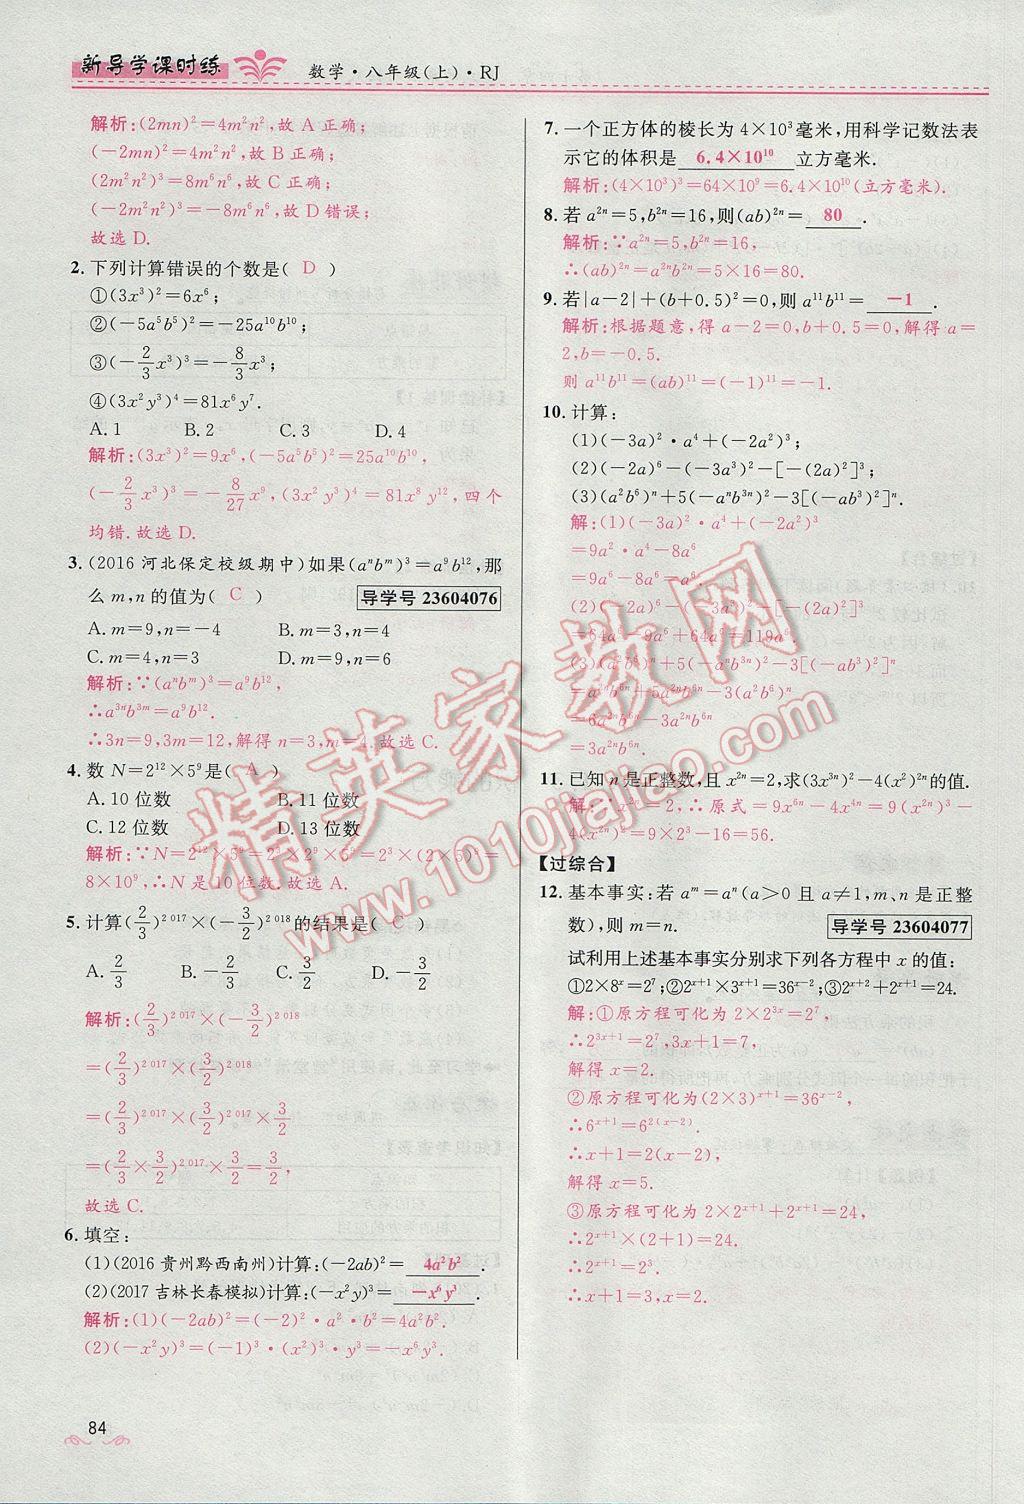 新导学课时练 数学·八年级(上)·RJ
解析:(2mn)²=4m²n²,故 A 正确;
(-2mn)²=4m²n²,故 B 正确;
(2m²n²)³=8m⁶n⁶,故 C 正确;
(-2m²n²)³=-8m⁶n⁶,故 D 错误;
故选 D.
2. 下列计算错误的个数是( D )
①(3x³)²=6x⁶;
②(-5a⁵b⁵)²=-25a¹⁰b¹⁰;
③(-2/3x³)³=-8/3x³;
④(3x²y³)⁴=81x⁶y⁷.
A. 1 B. 2 C. 3 D. 4
解析:(3x³)²=9x⁶,(-5a⁵b⁵)²=25a¹⁰b¹⁰,
(-2/3x³)³=-8/27x⁹,(3x²y³)⁴=81x⁸y¹²,四个
均错.故选 D.
3. (2016 河北保定校级期中)如果(aⁿbᵐ)³=a⁹b¹²,那
么 m,n 的值为( C ) 导学号 23604076
A. m=9,n=-4 B. m=3,n=4
C. m=4,n=3 D. m=9,n=6
解析:∵(aⁿbᵐ)³=a⁹b¹²,
∴a³ⁿb³ᵐ=a⁹b¹².
∴3n=9,3m=12,解得 n=3,m=...故选 C.
4. 数 N=2¹²×5⁹是( A )
A. 10 位数 B. 11 位数
C. 12 位数 D. 13 位数
解析:∵N=2¹²×5⁹=2³×2⁹×5⁹=2³×(2×5)⁹=
8×10⁹,∴N 是 10 位数.故选 A.
5. 计算(2/3)²⁰¹⁷×(-3/2)²⁰¹⁸的结果是( C )
A. 2/3 B. -2/3 C. 3/2 D. -3/2
解析:(2/3)²⁰¹⁷×(-3/2)²⁰¹⁸
=(2/3)²⁰¹⁷×(3/2)²⁰¹⁸
=(2/3)²⁰¹⁷×(3/2)²⁰¹⁷×3/2
=(2/3×3/2)²⁰¹⁷×3/2=3/2,
故选 C.
6. 填空:
(1)(2016 贵州黔西南州)计算:(-2ab)²= 4a²b² .
(2)(2017 吉林长春模拟)计算:(-x²y)³= -x⁶y³ .
解析:(1)(-2ab)²=(-2)²·a²·b²=4a²b².
(2)(-x²y)³=(-1)³·(x²)³·y³=-x⁶y³.
84
7. 一个正方体的棱长为 4×10³毫米,用科学记数法表
示它的体积是 6.4×10¹⁰ 立方毫米.
解析:(4×10³)³=64×10⁹=6.4×10¹⁰(立方毫米).
8. 若 a²ⁿ=5,b²ⁿ=16,则(ab)²ⁿ= 80 .
解析:∵a²ⁿ=5,b²ⁿ=16,
∴(ab)²ⁿ=a²ⁿb²ⁿ=5×16=80.
9. 若|a-2|+(b+0.5)²=0,则 a¹¹b¹¹= -1 .
解析:根据题意,得 a-2=0,b+0.5=0,解得 a=
2,b=-0.5.
则 a¹¹b¹¹=(ab)¹¹=(-1)¹¹=-1.
10. 计算:
(1)(-3a)²·a⁴+(-2a²)³;
(2)(-2a)⁶-(-3a³)²-[-(2a)²]³;
(3)(a²b⁶)ⁿ+5(-aⁿb³ⁿ)²-3[(-ab³)²]ⁿ.
解:(1)(-3a)²·a⁴+(-2a²)³
=9a²·a⁴-8a⁶
=9a⁶-8a⁶=a⁶.
(2)(-2a)⁶-(-3a³)²-[-(2a)²]³
=64a⁶-9a⁶+64a⁶=119a⁶.
(3)(a²b⁶)ⁿ+5(-aⁿb³ⁿ)²-3[(-ab³)²]ⁿ
=a²ⁿb⁶ⁿ+5a²ⁿb⁶ⁿ-3(a²b⁶)ⁿ
=6a²ⁿb⁶ⁿ-3a²ⁿb⁶ⁿ
=3a²ⁿb⁶ⁿ.
11. 已知 n 是正整数,且 x²ⁿ=2,求(3x³ⁿ)²-4(x²)²ⁿ的值.
解:∵x²ⁿ=2,∴原式=9x⁶ⁿ-4x⁴ⁿ=9(x²ⁿ)³-
4(x²ⁿ)²=9×2³-16=56.
【过综合】
12. 基本事实:若 aᵐ=aⁿ(a>0 且 a≠1,m、n 是正整
数),则 m=n. 导学号 23604077
试利用上述基本事实分别求下列各方程中 x 的值:
①2×8ˣ=2⁷;②2ˣ⁺¹×3ˣ⁺¹=36ˣ⁻²;③2ˣ⁺²+2ˣ⁺¹=24.
解:①原方程可化为 2×2³ˣ=2⁷,
∴2³ˣ⁺¹=2⁷,3x+1=7,
解得 x=2.
②原方程可化为(2×3)ˣ⁺¹=36ˣ⁻²,
∴6ˣ⁺¹=(6²)ˣ⁻².
∴x+1=2(x-2),
解得 x=5.
③原方程可化为 2×2ˣ⁺¹+2ˣ⁺¹=24,
∴2ˣ⁺¹×(2+1)=24.
∴2ˣ⁺¹=2³.
∴x+1=3,解得 x=2.
精英家教网
www.1010jiajiao.com